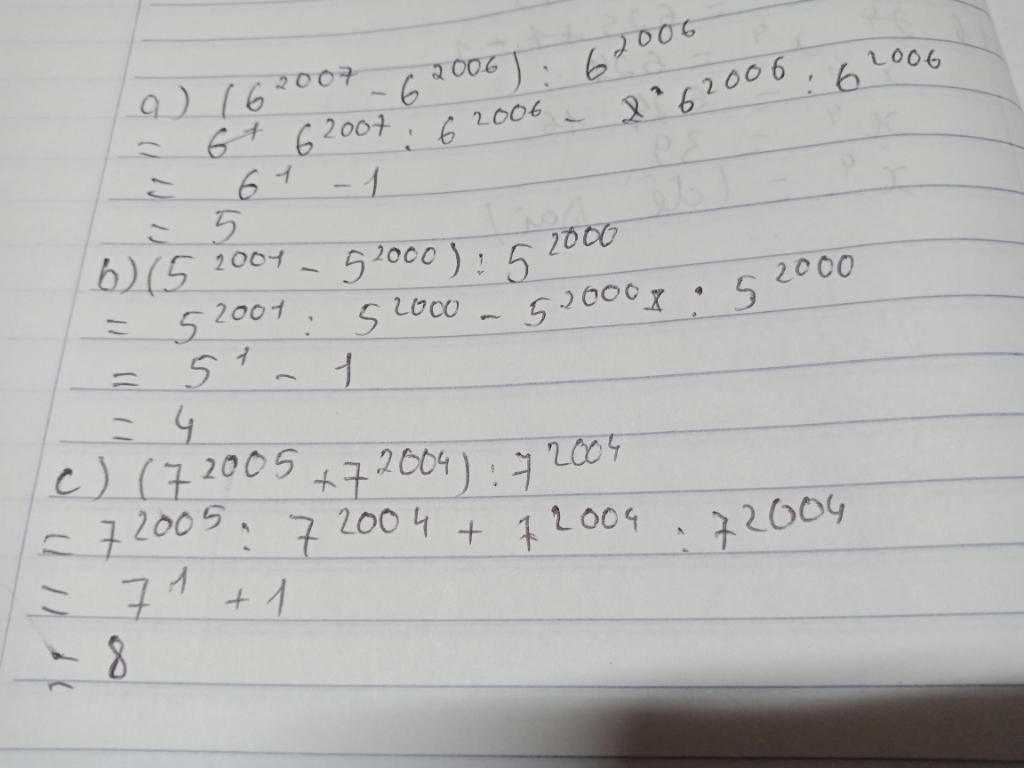 a) (6^2007 - 6^2006) : 6^2006
= 6^2007 : 6^2006 - 6^2006 : 6^2006
= 6^1 - 1
= 5
b) (5^2001 - 5^2000) : 5^2000
= 5^2001 : 5^2000 - 5^2000 : 5^2000
= 5^1 - 1
= 4
c) (7^2005 + 7^2004) : 7^2004
= 7^2005 : 7^2004 + 7^2004 : 7^2004
= 7^1 + 1
= 8